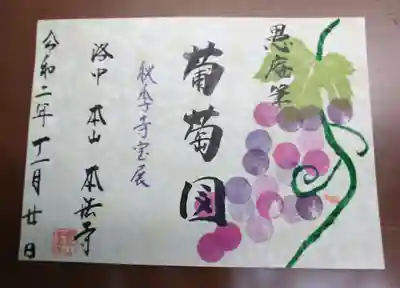 愚庵筆
葡萄図
秋季寺宝展
洛中 本山 本法寺
令和二年十一月廿日